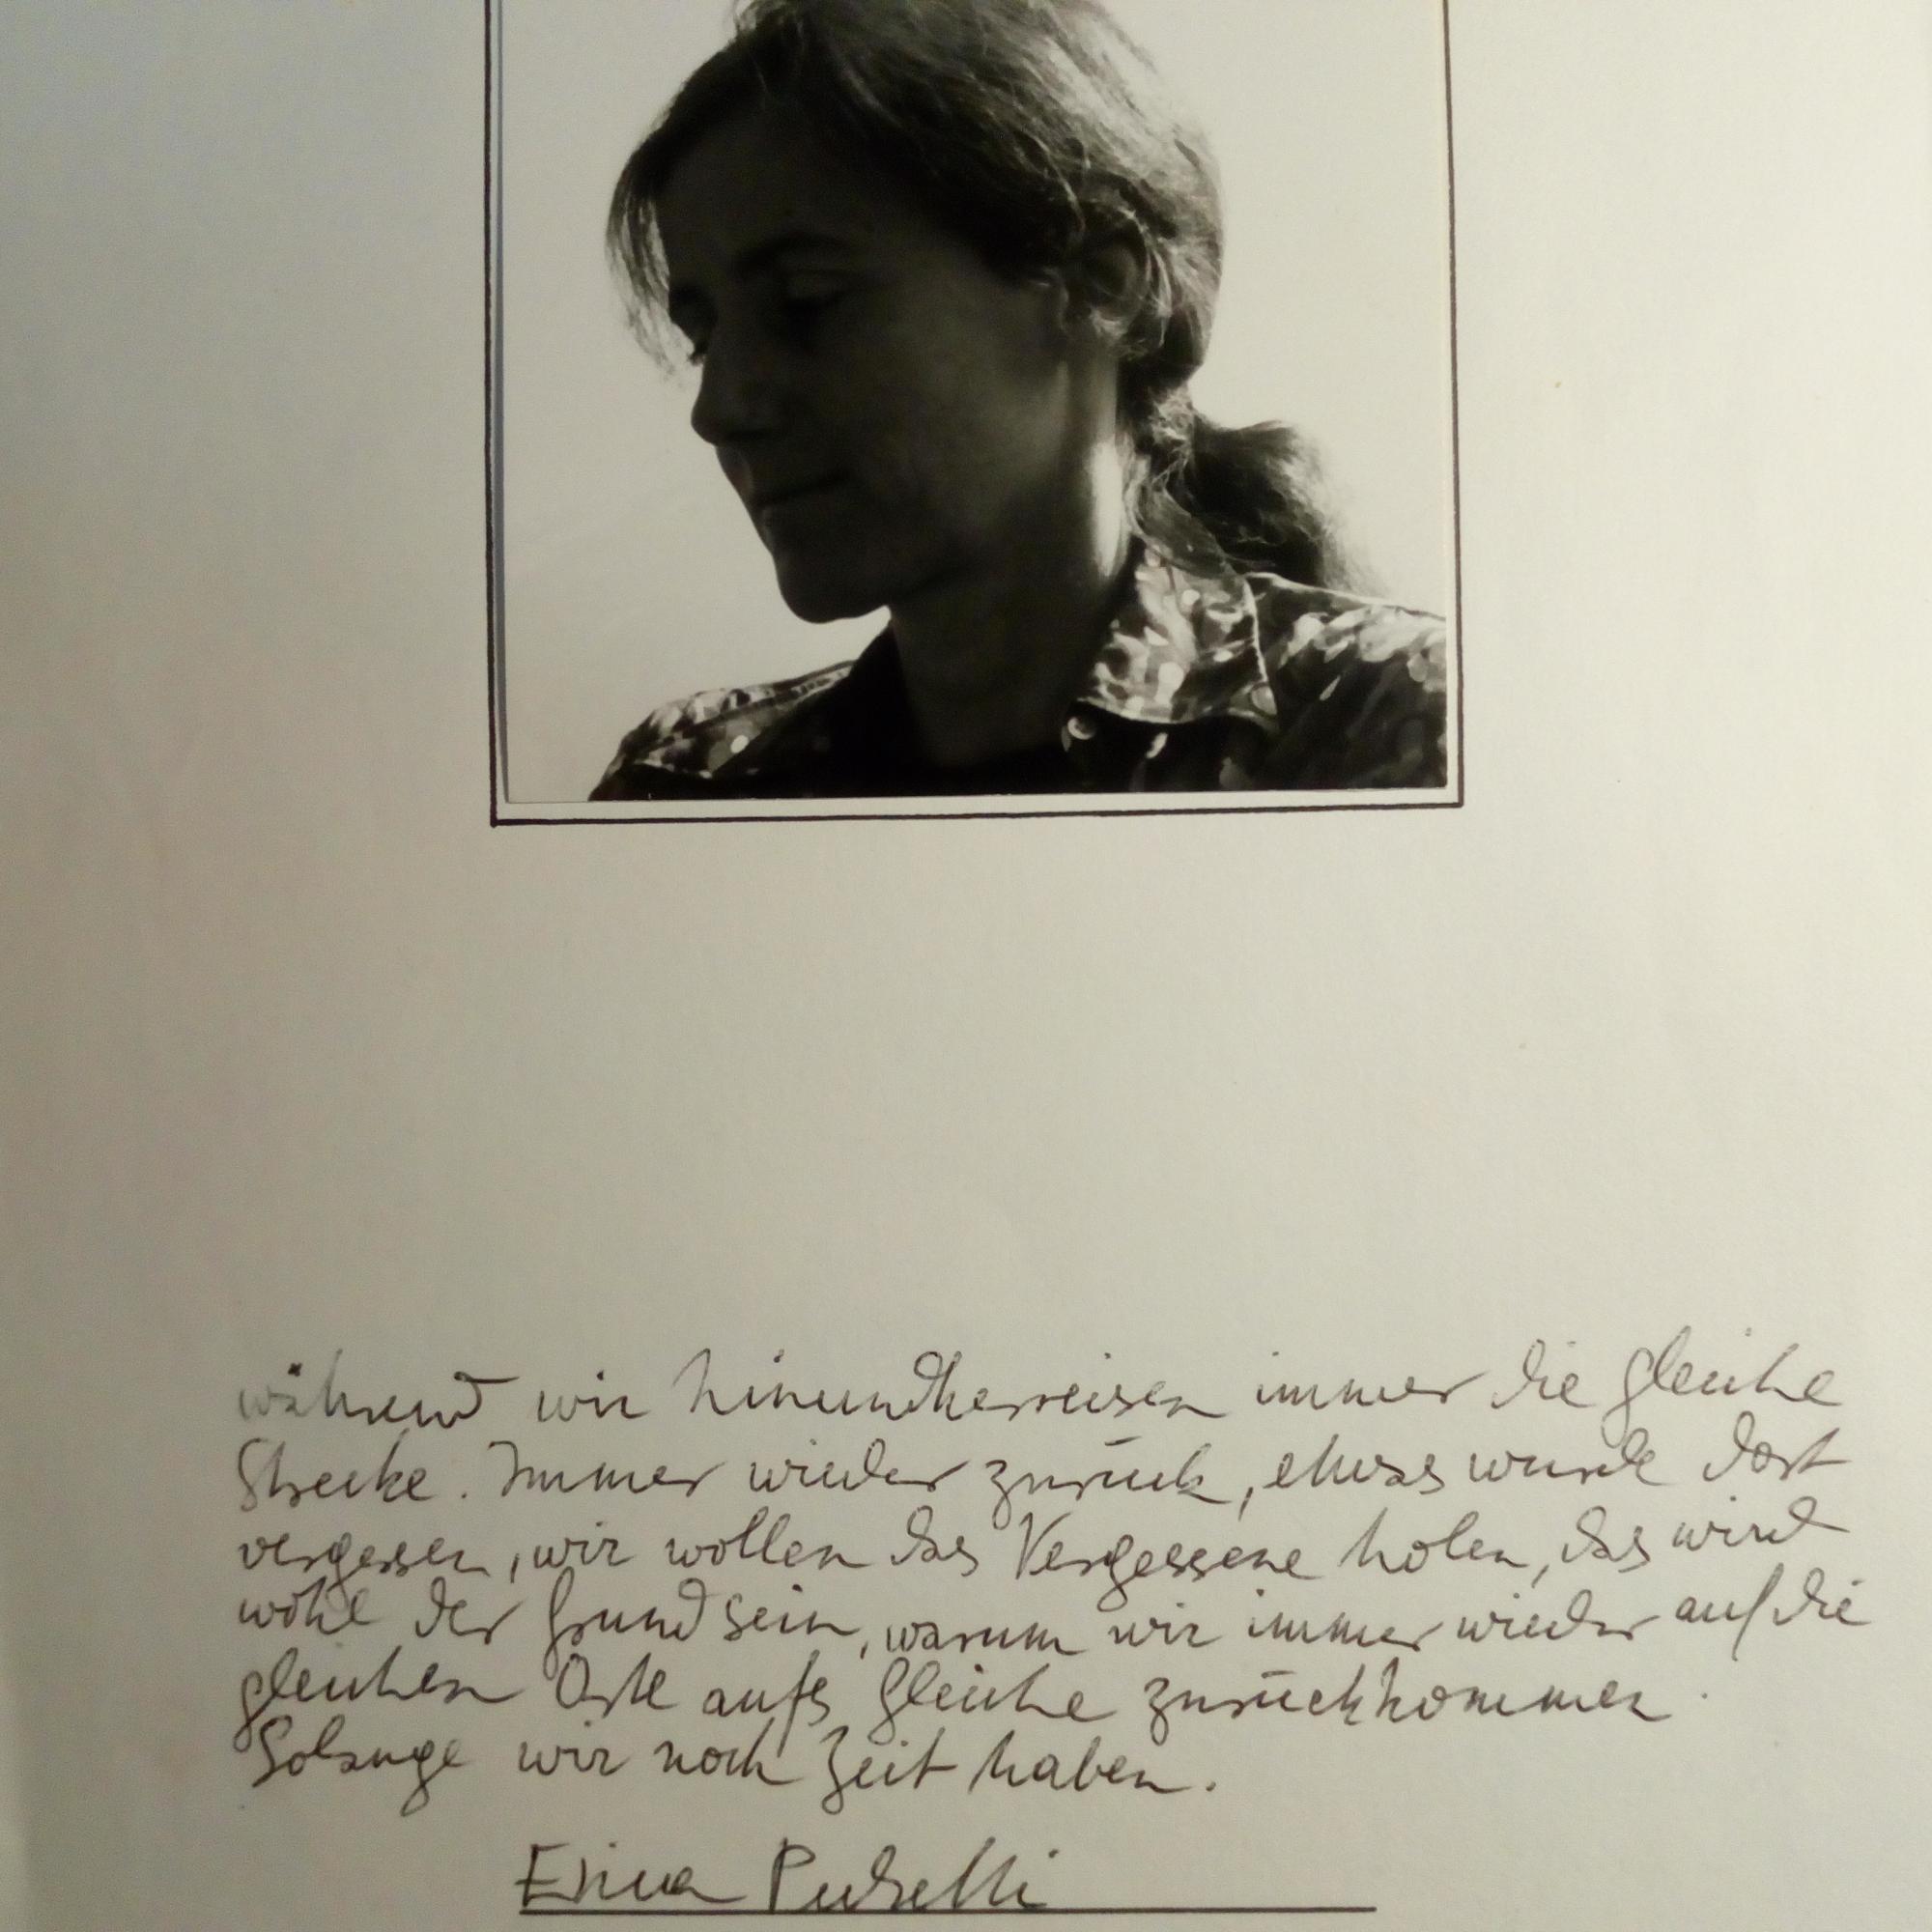 während wir hinundherreisen immer die gleiche
Strecke. Immer wieder zurück, etwas wurde dort
vergessen, wir wollen das Vergessene holen, das wird
wohl der Grund sein, warum wir immer wieder auf die
gleichen Orte aufs Gleiche zurückkommen.
Solange wir noch Zeit haben.
Erica Pedretti